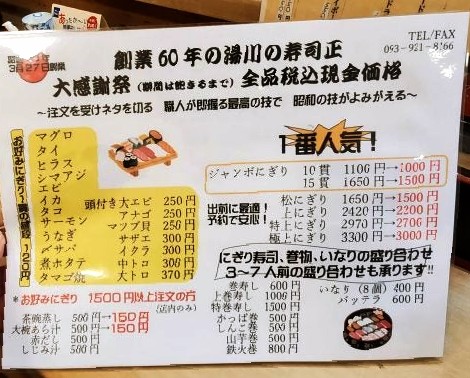 TEL/FAX
093-921-8166
3月27日創業
創業60年の湯川の寿司正
大感謝祭(期間は飽きるまで)全品税込現金価格
~注文を受けネタを切る 職人が即握る最高の技で 昭和の技がよみがえる~
お好みにぎり一貫の値段 120円
マグロ
タイ
ヒラス
シマアジ
エビ
イカ
タコ
サーモン
うなぎ
〆サバ
煮ホタテ
タマゴ焼
頭付き大エビ 250円
アナゴ 250円
マツブ貝 250円
サザエ 300円
イクラ 300円
中トロ 300円
大トロ 370円
1番人気!
ジャンボにぎり 10貫 1100円→1000円
15貫 1650円→1500円
出前に最適!
予約で安心!
松にぎり 1650円→1500円
上にぎり 2420円→2200円
特上にぎり 2970円→2700円
極上にぎり 3300円→3000円
にぎり寿司、巻物、いなりの盛り合わせ
3~7人前の盛り合わせも承ります!!
*お好みにぎり 1500円以上注文の方
(店内のみ)
茶碗蒸し 500円→150円
大椀あら汁 500円→150円
赤だし 500円
しじみ汁 500円
巻寿し 600円
上巻寿し 1000円
特巻寿し 1500円
かっぱ巻 500円
しんこ巻 500円
山芋巻 500円
鉄火巻 800円
いなり(8個)400円
バッテラ 600円